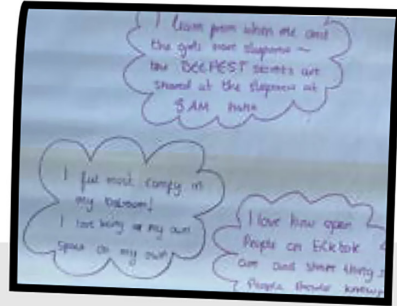 I learn from when me and
the girls have sleepovers ~
the DEEPEST secrets are
shared at the sleepover at
3AM haha
I feel most comfy in
my bedroom!
I love being in my own
space on my own
I love how open
People on tiktok
are and share things
People should know